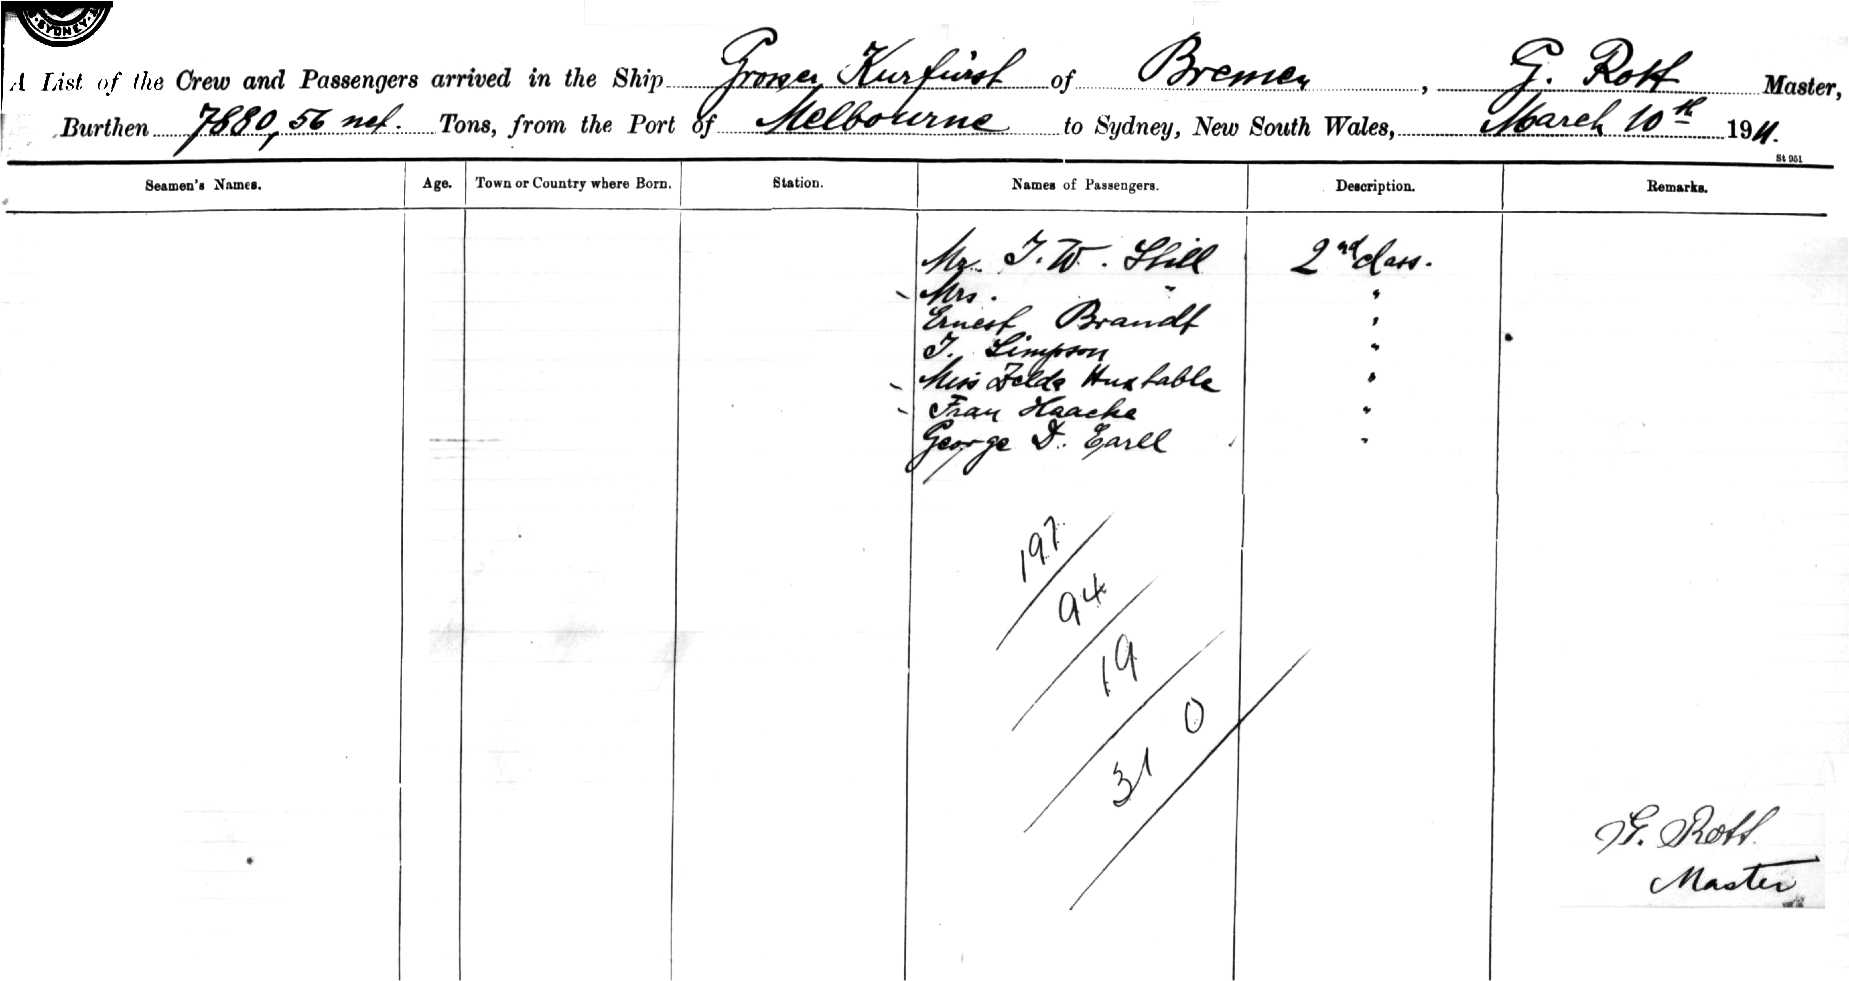 SYDNEY
A List of the Crew and Passengers arrived in the Ship Grosser Kurfürst of Bremen, G. Rott Master,
Burthen 7880,56 net. Tons, from the Port of Melbourne to Sydney, New South Wales, March 10th 1911.
St 951
Seamen's Names. Age. Town or Country where Born. Station. Names of Passengers. Description. Remarks.
Mr. T. W. Still 2nd class.
Mrs. " "
Ernest Brandt "
T. Simpson "
Miss Zelda Huxtable "
Frau Haacke "
George D. Earll "
197
94
19
310
G. Rott
Master